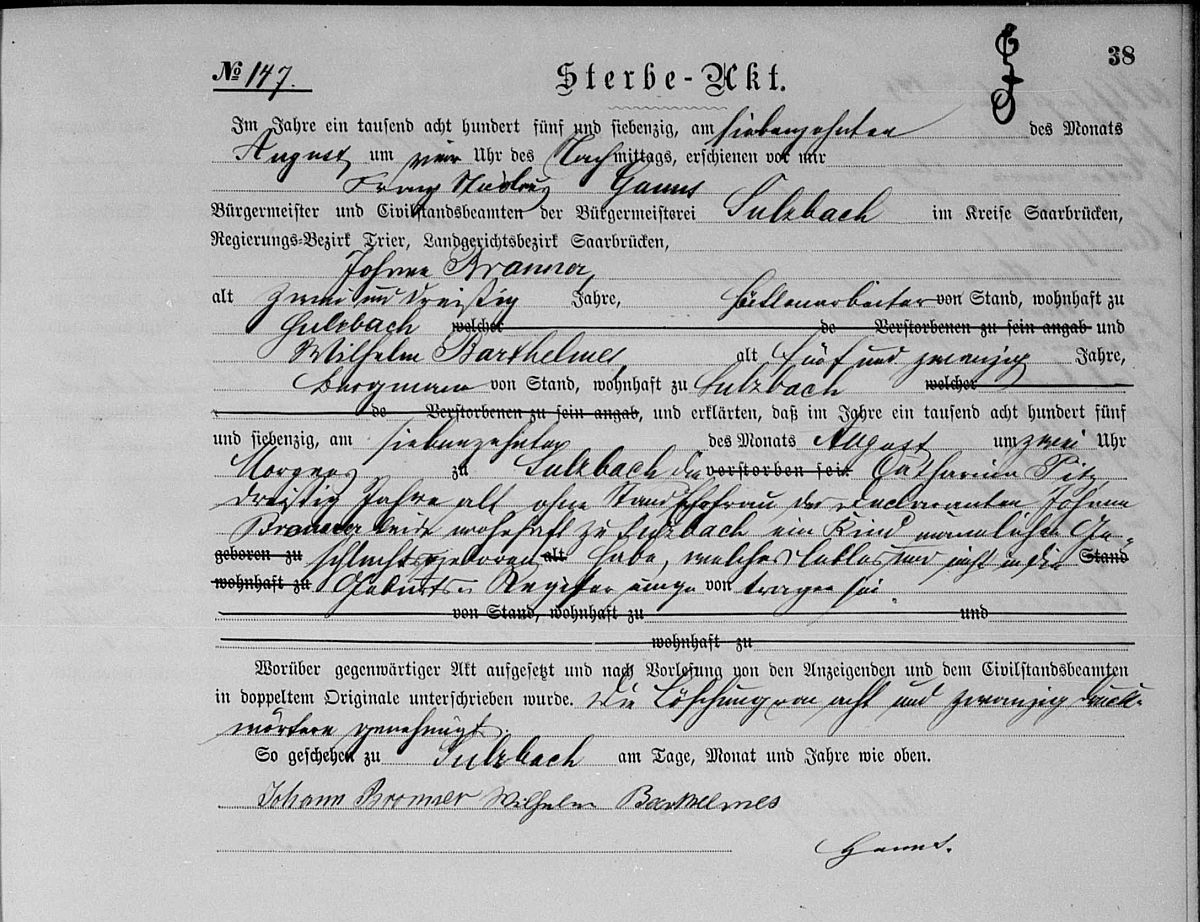 38
№ 147. Sterbe-Akt.
Im Jahre ein tausend acht hundert fünf und siebenzig, am siebenzehnten des Monats
August um vier Uhr des Nachmittags, erschienen vor mir
Franz Hanns
Bürgermeister und Civilstandsbeamten der Bürgermeisterei Sulzbach im Kreise Saarbrücken,
Regierungs-Bezirk Trier, Landgerichtsbezirk Saarbrücken,
Johann Bronner
alt zwei und dreißig Jahre, Hüttenarbeiter von Stand, wohnhaft zu
Sulzbach welcher de Verstorbenen zu sein angab und
Wilhelm Barthelmes alt fünf und zwanzig Jahre,
Bergmann von Stand, wohnhaft zu Sulzbach welcher
de Verstorbenen zu sein angab, und erklärten, daß im Jahre ein tausend acht hundert fünf
und siebenzig, am siebenzehnten des Monats August um zwei Uhr
Morgens zu Sulzbach die verstorben sei: Catharina Pitz
dreißig Jahre alt ohne Stand Ehefrau des Declaranten Johann
Bronner beide wohnhaft zu Sulzbach ein Kind männlichen Ge-
geboren zu schlechts geboren alt habe, welches leblos und nicht in die Stand
wohnhaft zu Geburts- Register einge von tragen sei.
von Stand, wohnhaft zu und
wohnhaft zu
Worüber gegenwärtiger Akt aufgesetzt und nach Vorlesung von den Anzeigenden und dem Civilstandsbeamten
in doppeltem Originale unterschrieben wurde. Die Löschung von acht und zwanzig Druck-
wörtern genehmigt.
So geschehen zu Sulzbach am Tage, Monat und Jahre wie oben.
Johann Bronner Wilhelm Barthelmes
Hanns.